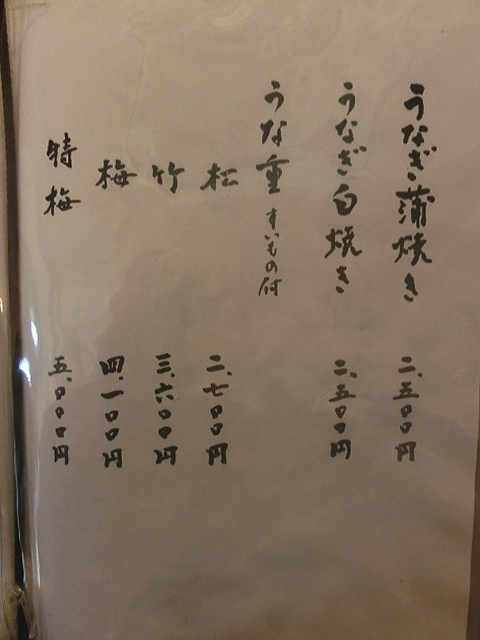 うなぎ蒲焼き 二、五〇〇円
うなぎ白焼き 二、五〇〇円
うな重 すいもの付
松 二、七〇〇円
竹 三、六〇〇円
梅 四、一〇〇円
特梅 五、〇〇〇円